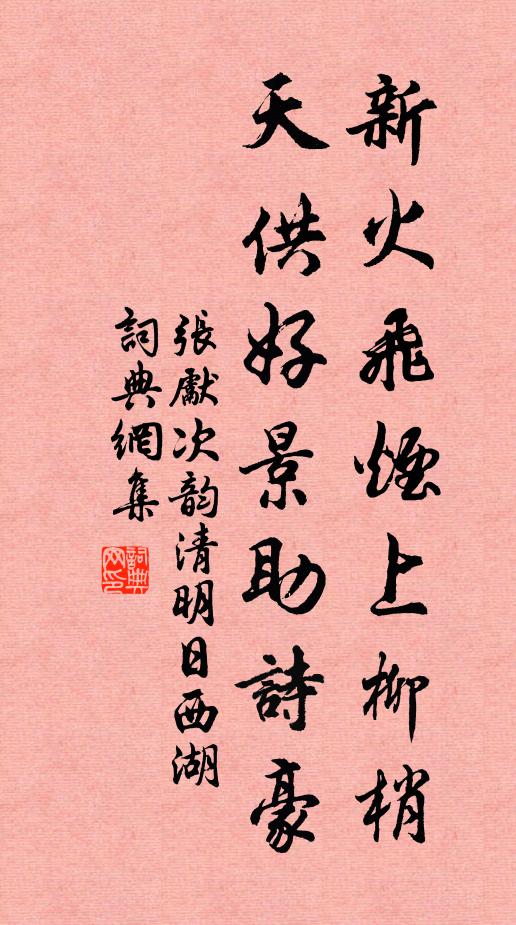 新火飛煙上柳梢
天供好景助詩豪
張獻次韵清明日西湖
詞典網集
詞典網印